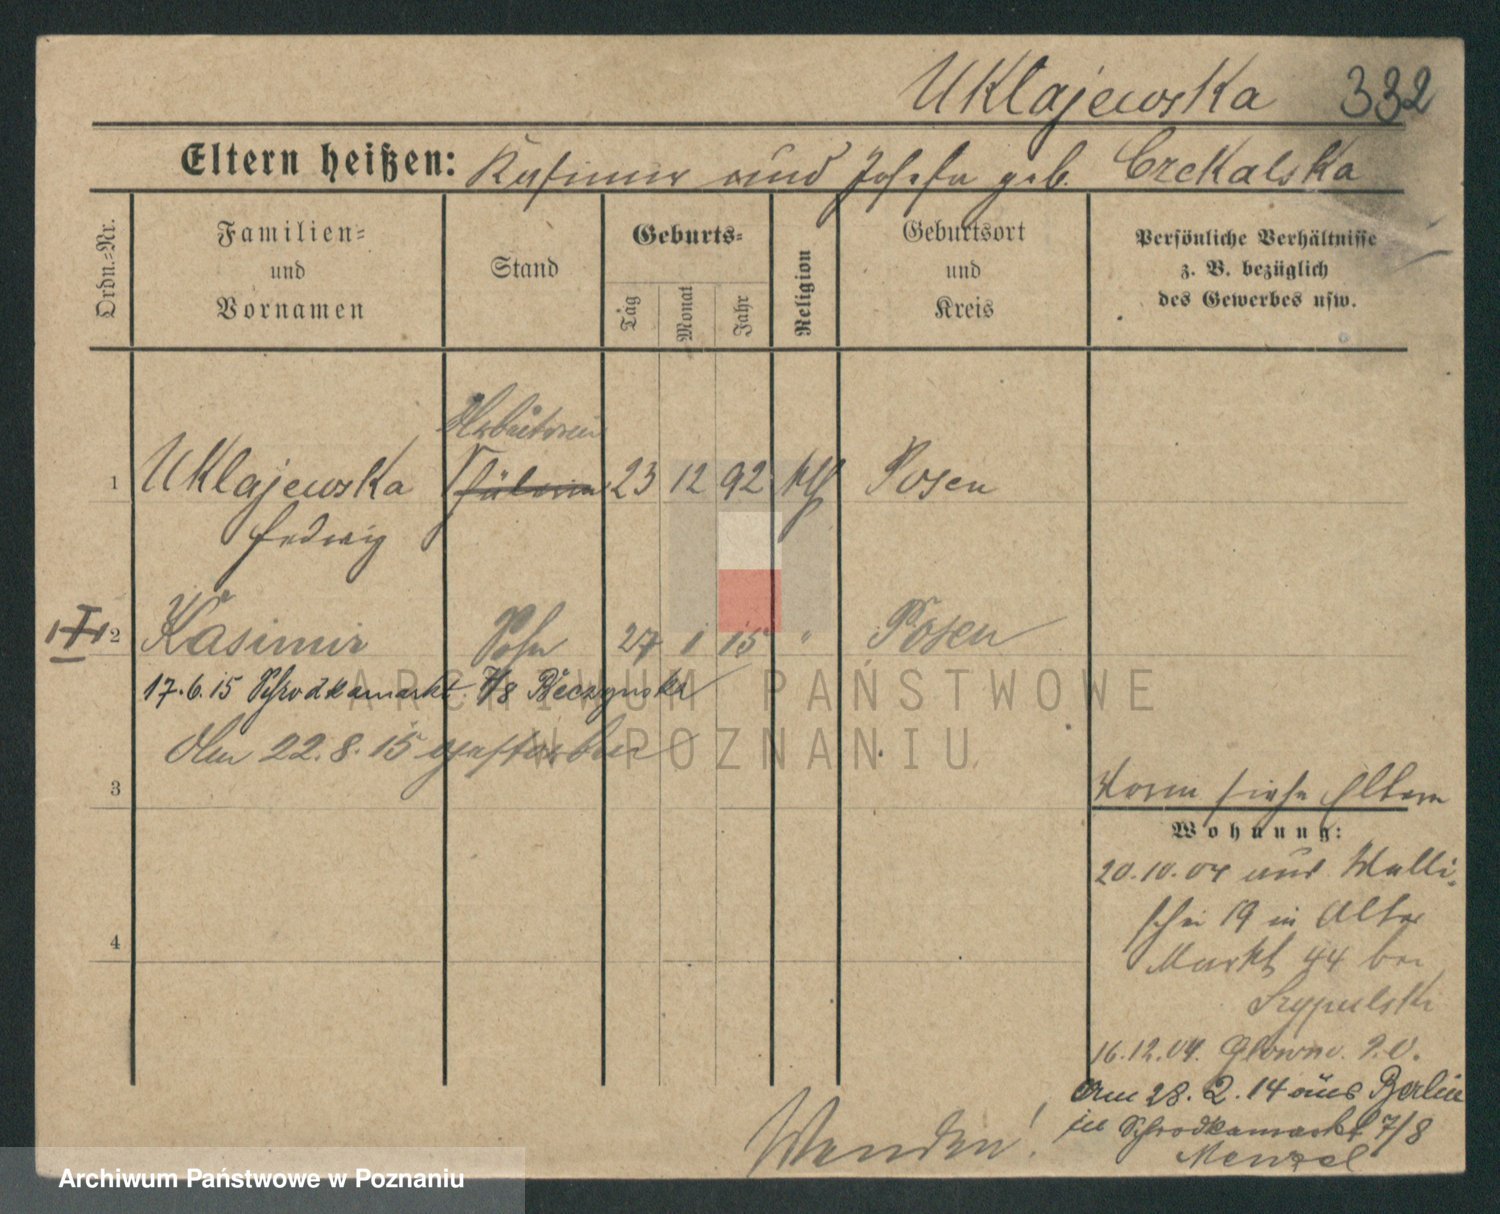 Uklajewska 332
Eltern heißen: Kasimir und Josefa geb. Czekalska
Ordn.-Nr.
Familien-
und
Vornamen
Stand
Geburts-
Tag
Monat
Jahr
Religion
Geburtsort
und
Kreis
Persönliche Verhältnisse
z. B. bezüglich
des Gewerbes usw.
Arbeiterin
1 Uklajewska Schülerin 23 12 92 kth Posen
Hedwig
2 Kasimir Sohn 27 1 15 " Posen
17.6.15 Schrodkamarkt 7/8 Reczynska
Am 22.8.15 gestorben
3
4
Vorm siehe Eltern
Wohnung:
20.10.04 aus Walli-
schei 19 in Alter
Markt 44 bei
Szypulski
16.12.04. Glowno 20.
Am 28.2.14 aus Berlin
in Schrodkamarkt 7/8
Menzel
Wenden!
ARCHIWUM PAŃSTWOWE
W POZNANIU
Archiwum Państwowe w Poznaniu